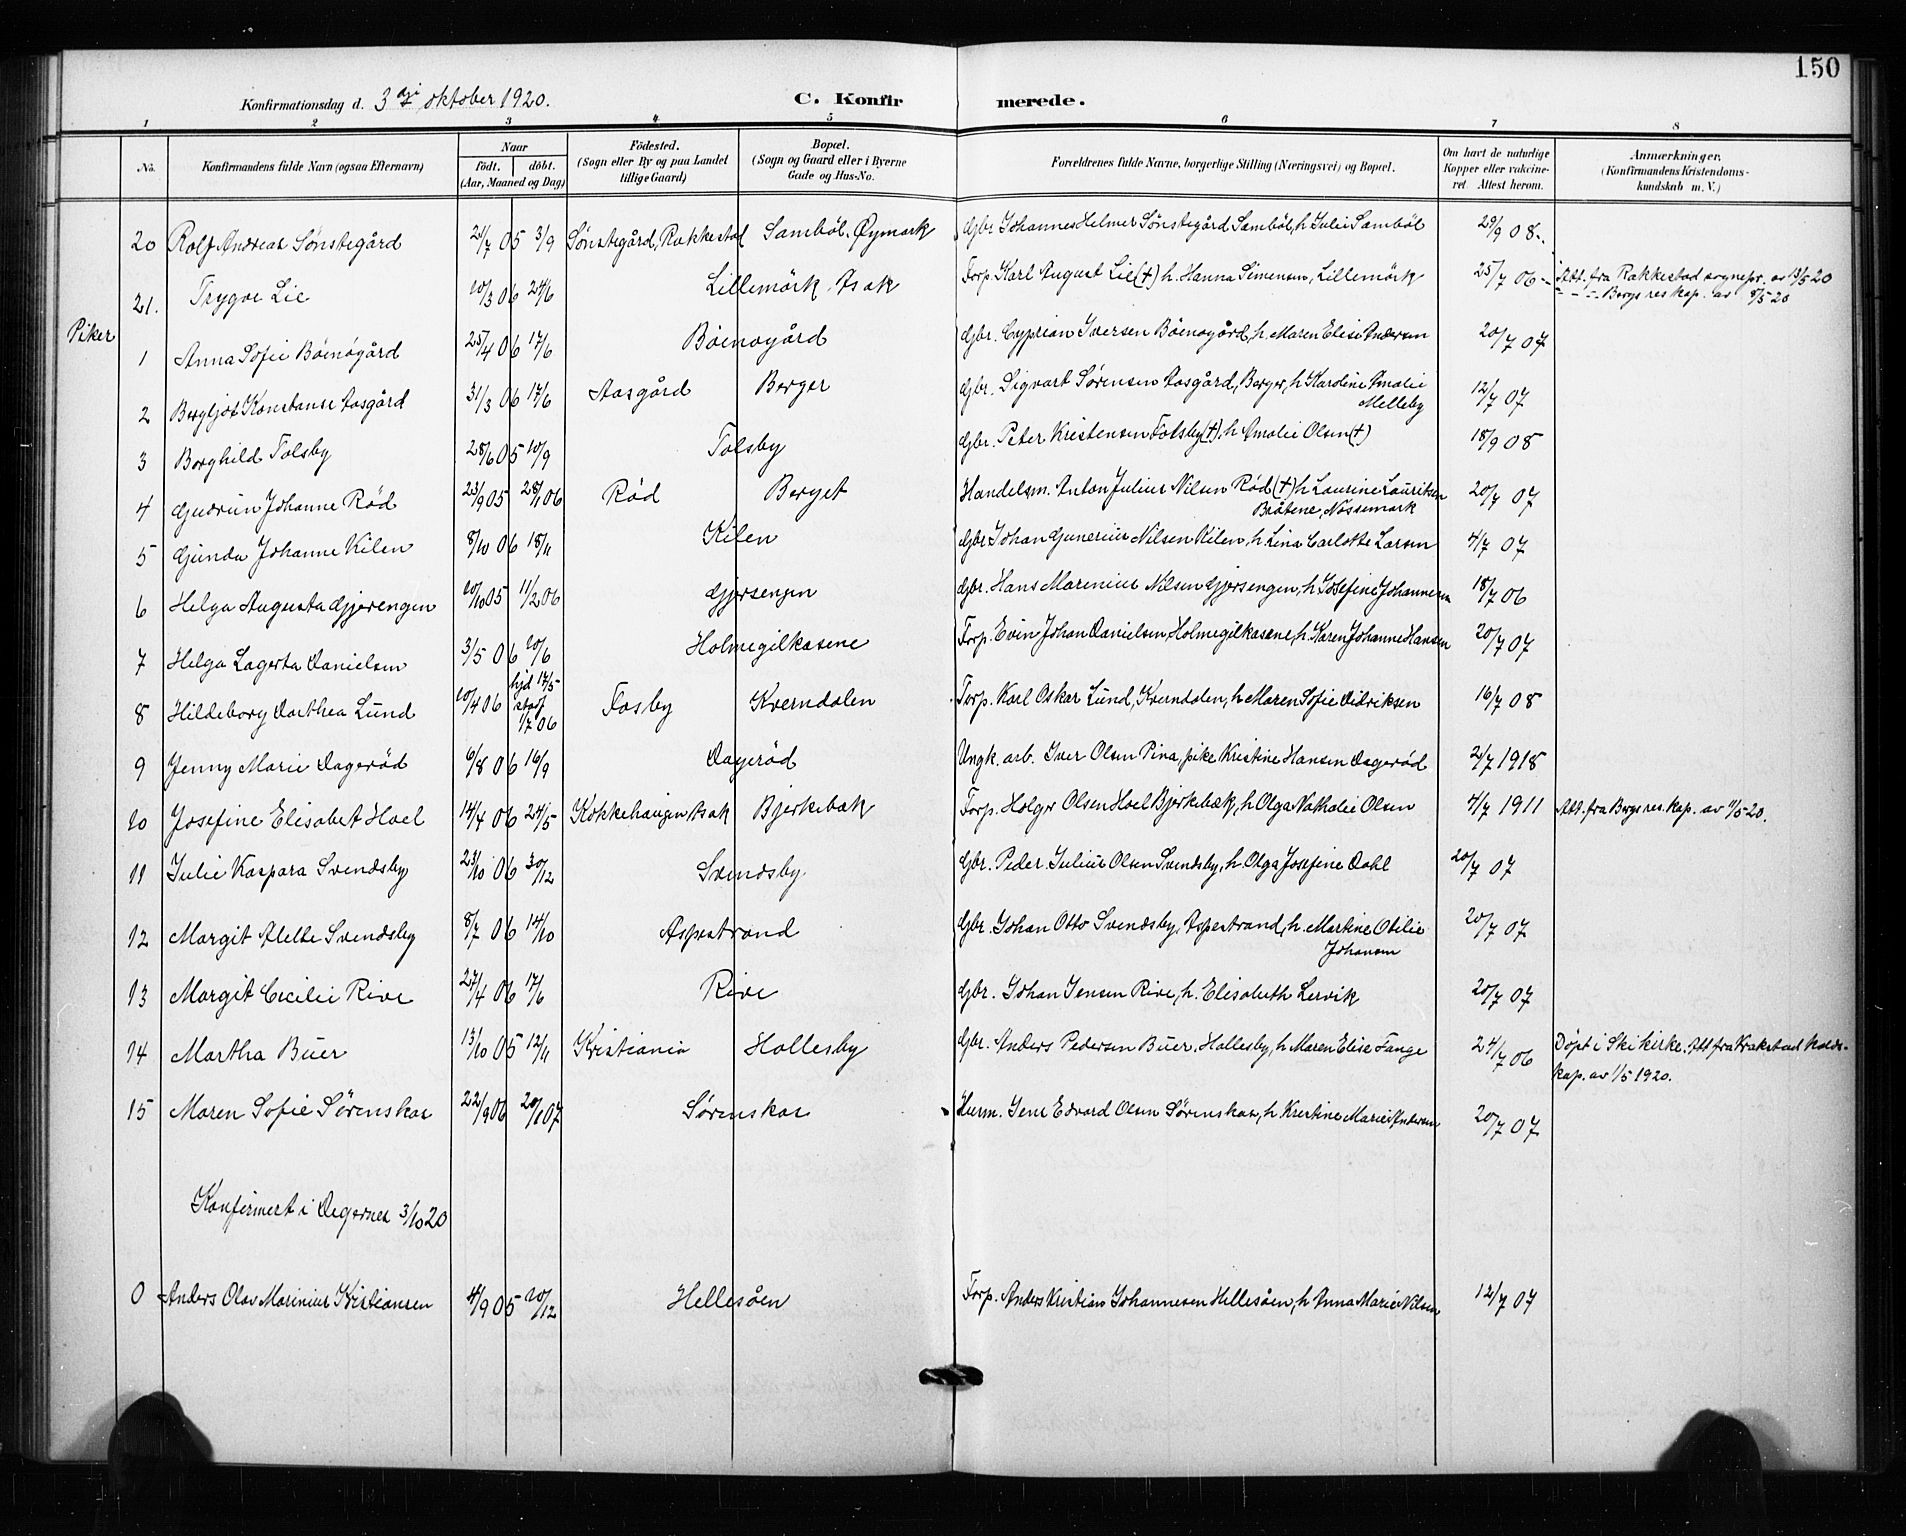 150
Konfirmationsdag d. 3dje oktober 1920. C. Konfirmerede.
1 2 3 4 5 6 7 8
No. Konfirmandens fulde Navn (ogsaa Efternavn) Naar født. døbt. (Aar, Maaned og Dag) Fødested. (Sogn eller By og paa Landet tillige Gaard) Bopæl. (Sogn og Gaard eller i Byerne Gade og Hus-No. Forældrenes fulde Navne, borgerlige Stilling (Næringsvei) og Bopæl. Om havt de naturlige Kopper eller vakcineret. Attest herom. Anmærkninger. (Konfirmandens Kristendomskundskab m. V.)
20 Rolf Andreas Sønstegård 21/7 05 3/9 Sønstegård, Rakkestad Sambøl. Øymark Gbr. Johannes Helmer Sønstegård Sambøl, h Julie Sambøl 29/9 08.
21. Trygve Lie 10/3 06 24/6 Lillemörk. Asak Forp. Karl August Lie (†) h. Hanna Simensen, Lillemörk 25/7 06 Att. fra Rakkestad sognepr. av 19/5 20
- - - Bergs res kap. av 8/5 20
Piker
1 Anna Sofie Böenögård 25/4 06 17/6 Böensgård Gbr. Cyprian Iversen Böensgård, h. Maren Elise Andersen 20/7 07
2 Bergljot Konstanse Aasgård 31/3 06 17/6 Aasgård Berger Gbr. Sigvart Sørensen Aasgård, Berger, h Karoline Amalie Melleby 12/7 07
3 Borghild Tolsby 28/6 05 10/9 Tolsby Gbr. Peter Kristensen Tolsby (†), h Amalie Olsen (†) 18/9 08
4 Gudrun Johanne Rød 23/9 05 28/1 06 Rød Berget Handelsm. Anton Julius Nilsen Rød (†) h Laurine Lauritsen Bråtene, Nössemark 20/7 07
5 Gunda Johanne Kilen 8/10 06 18/11 Kilen Gbr Johan Gunerius Nilsen Kilen, h Lina Carlotte Larsen 4/7 07
6 Helga Augusta Gjørengen 10/10 05 11/2 06 Gjørsengen Gbr. Hans Marenius Nilsen Gjørsengen, h Josefine Johannesen 18/7 06
7 Helga Lagerta Danielsen 3/5 06 10/6 Holmegilkasene Forp. Evin Johan Danielsen, Holmegilkasene, h. Karen Johanne Hansen 20/7 07
8 Hildeborg Dorthea Lund 10/4 06 hjd 17/5 stadf 1/7 06 Fosby Kverndalen Forp. Karl Oskar Lund, Kverndalen, h Maren Sofie Didriksen 16/7 08
9 Jenny Marie Dagerød 6/8 06 16/9 Dagerød Ungk. arb. Iver Olsen Pina, pike Kristine Hansen Dagerød 2/7 1918
10 Josefine Elisabet Hoel 14/4 06 24/5 Kokkehaugen Asak Bjerkebæk Forp. Holger Olsen Hoel Bjerkebæk, h. Olga Nathalie Olsen 4/7 1911 Att. fra Bergs res. kap. av 11/5-20.
11 Julie Kaspara Svendsby 23/10 06 30/12 Svendsby. Gbr. Peder Julius Olsen Svendsby, h Olga Josefine Dahl 20/7 07
12 Margit Alette Svendsby 8/7 06 14/10 Aspestrand Gbr. Johan Otto Svendsby, Aspestrand, h. Martine Otilie Johansen 20/7 07
13 Margit Cecilie Rive 27/4 06 17/6 Rive Gbr. Johan Jensen Rive, h. Elisabeth Lervik 20/7 07
14 Martha Buer 13/10 05 12/11 Kristiania Hallesby Gbr. Anders Pedersen Buer, Hallesby, h Maren Elise Tange 24/7 06 Døpt i Ski kirke. Att fra Krakstad
kap. av 1/5 1920.
15 Maren Sofie Sørenskas 22/9 06 20/1 07 Sørenskas Husm. Jens Edvard Olsen Sørenskas, h Kristine Marie Andersen 20/7 07
Konfirmert i Degernes 3/10 20
0 Anders Olav Marinius Kristiansen 4/9 05 10/12 Hellesøen Forp. Anders Kristian Johannesen Hellesøen, h Anna Marie Nilsen 12/7 07